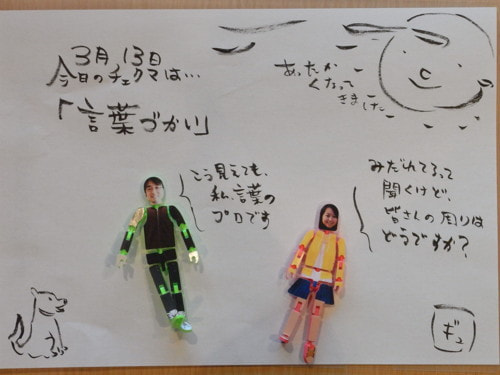 3月13日
今日のチェクマは…
「言葉づかい」
あったか
くなって
きました
こう見えても、
私、言葉の
プロです
みだれてるって
聞くけど、
皆さんの周りは
どうですか?
ギュ